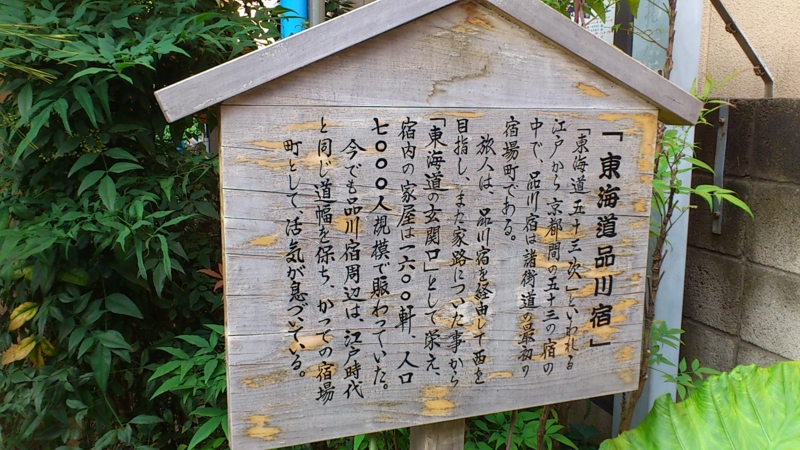 「東海道品川宿」
「東海道五十三次」といわれる
江戸から京都間の五十三の宿の
中で、品川宿は諸街道の最初の
宿場町である。
旅人は、品川宿を経由して西を
目指し、また家路についた事から
「東海道の玄関口」として栄え、
宿内の家屋は一六〇〇軒、人口
七〇〇〇人規模で賑わっていた。
今でも品川宿周辺は、江戸時代
と同じ道幅を保ち、かつての宿場
町として活気が息づいている。